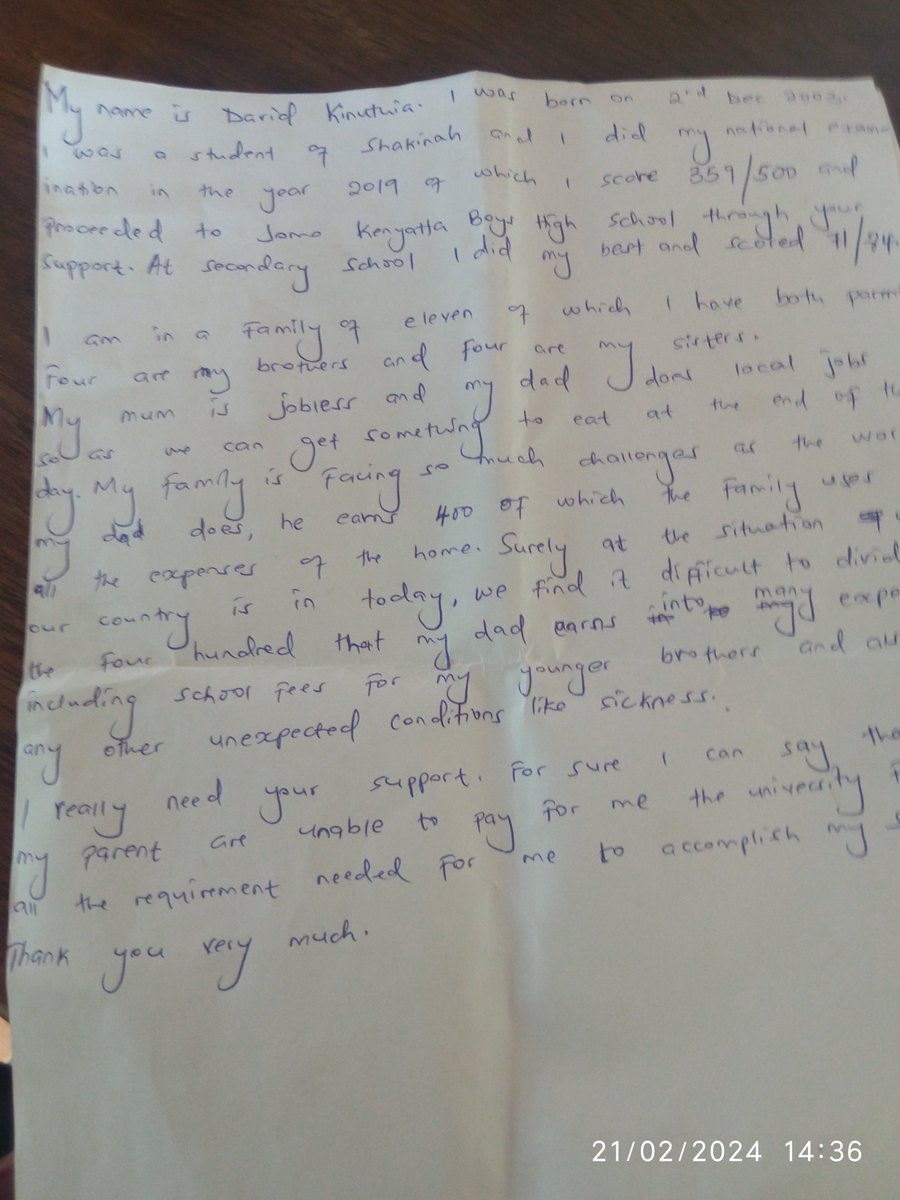 My name is David Kinuthia. I was born on 2nd Dec 2003.
I was a student of Shakinah and I did my national exam-
ination in the year 2019 of which I score 359/500 and
proceeded to Jomo Kenyatta Boys High school through your
support. At secondary school I did my best and scored 71/84.
I am in a family of eleven of which I have both paren
Four are my brothers and four are my sisters.
My mum is jobless and my dad does local jobs
so as we can get something to eat at the end of th
day. My family is facing so much challenges as the wor
my dad does, he earns 400 of which the family uses
all the expenses of the home. Surely at the situation
our country is in today, we find it difficult to divid
the four hundred that my dad earns into many expe
including school fees for my younger brothers and als
any other unexpected conditions like sickness.
I really need your support. For sure I can say tha
my parent are unable to pay for me the university f
all the requirement needed for me to accomplish my s
Thank you very much.
21/02/2024 14:36